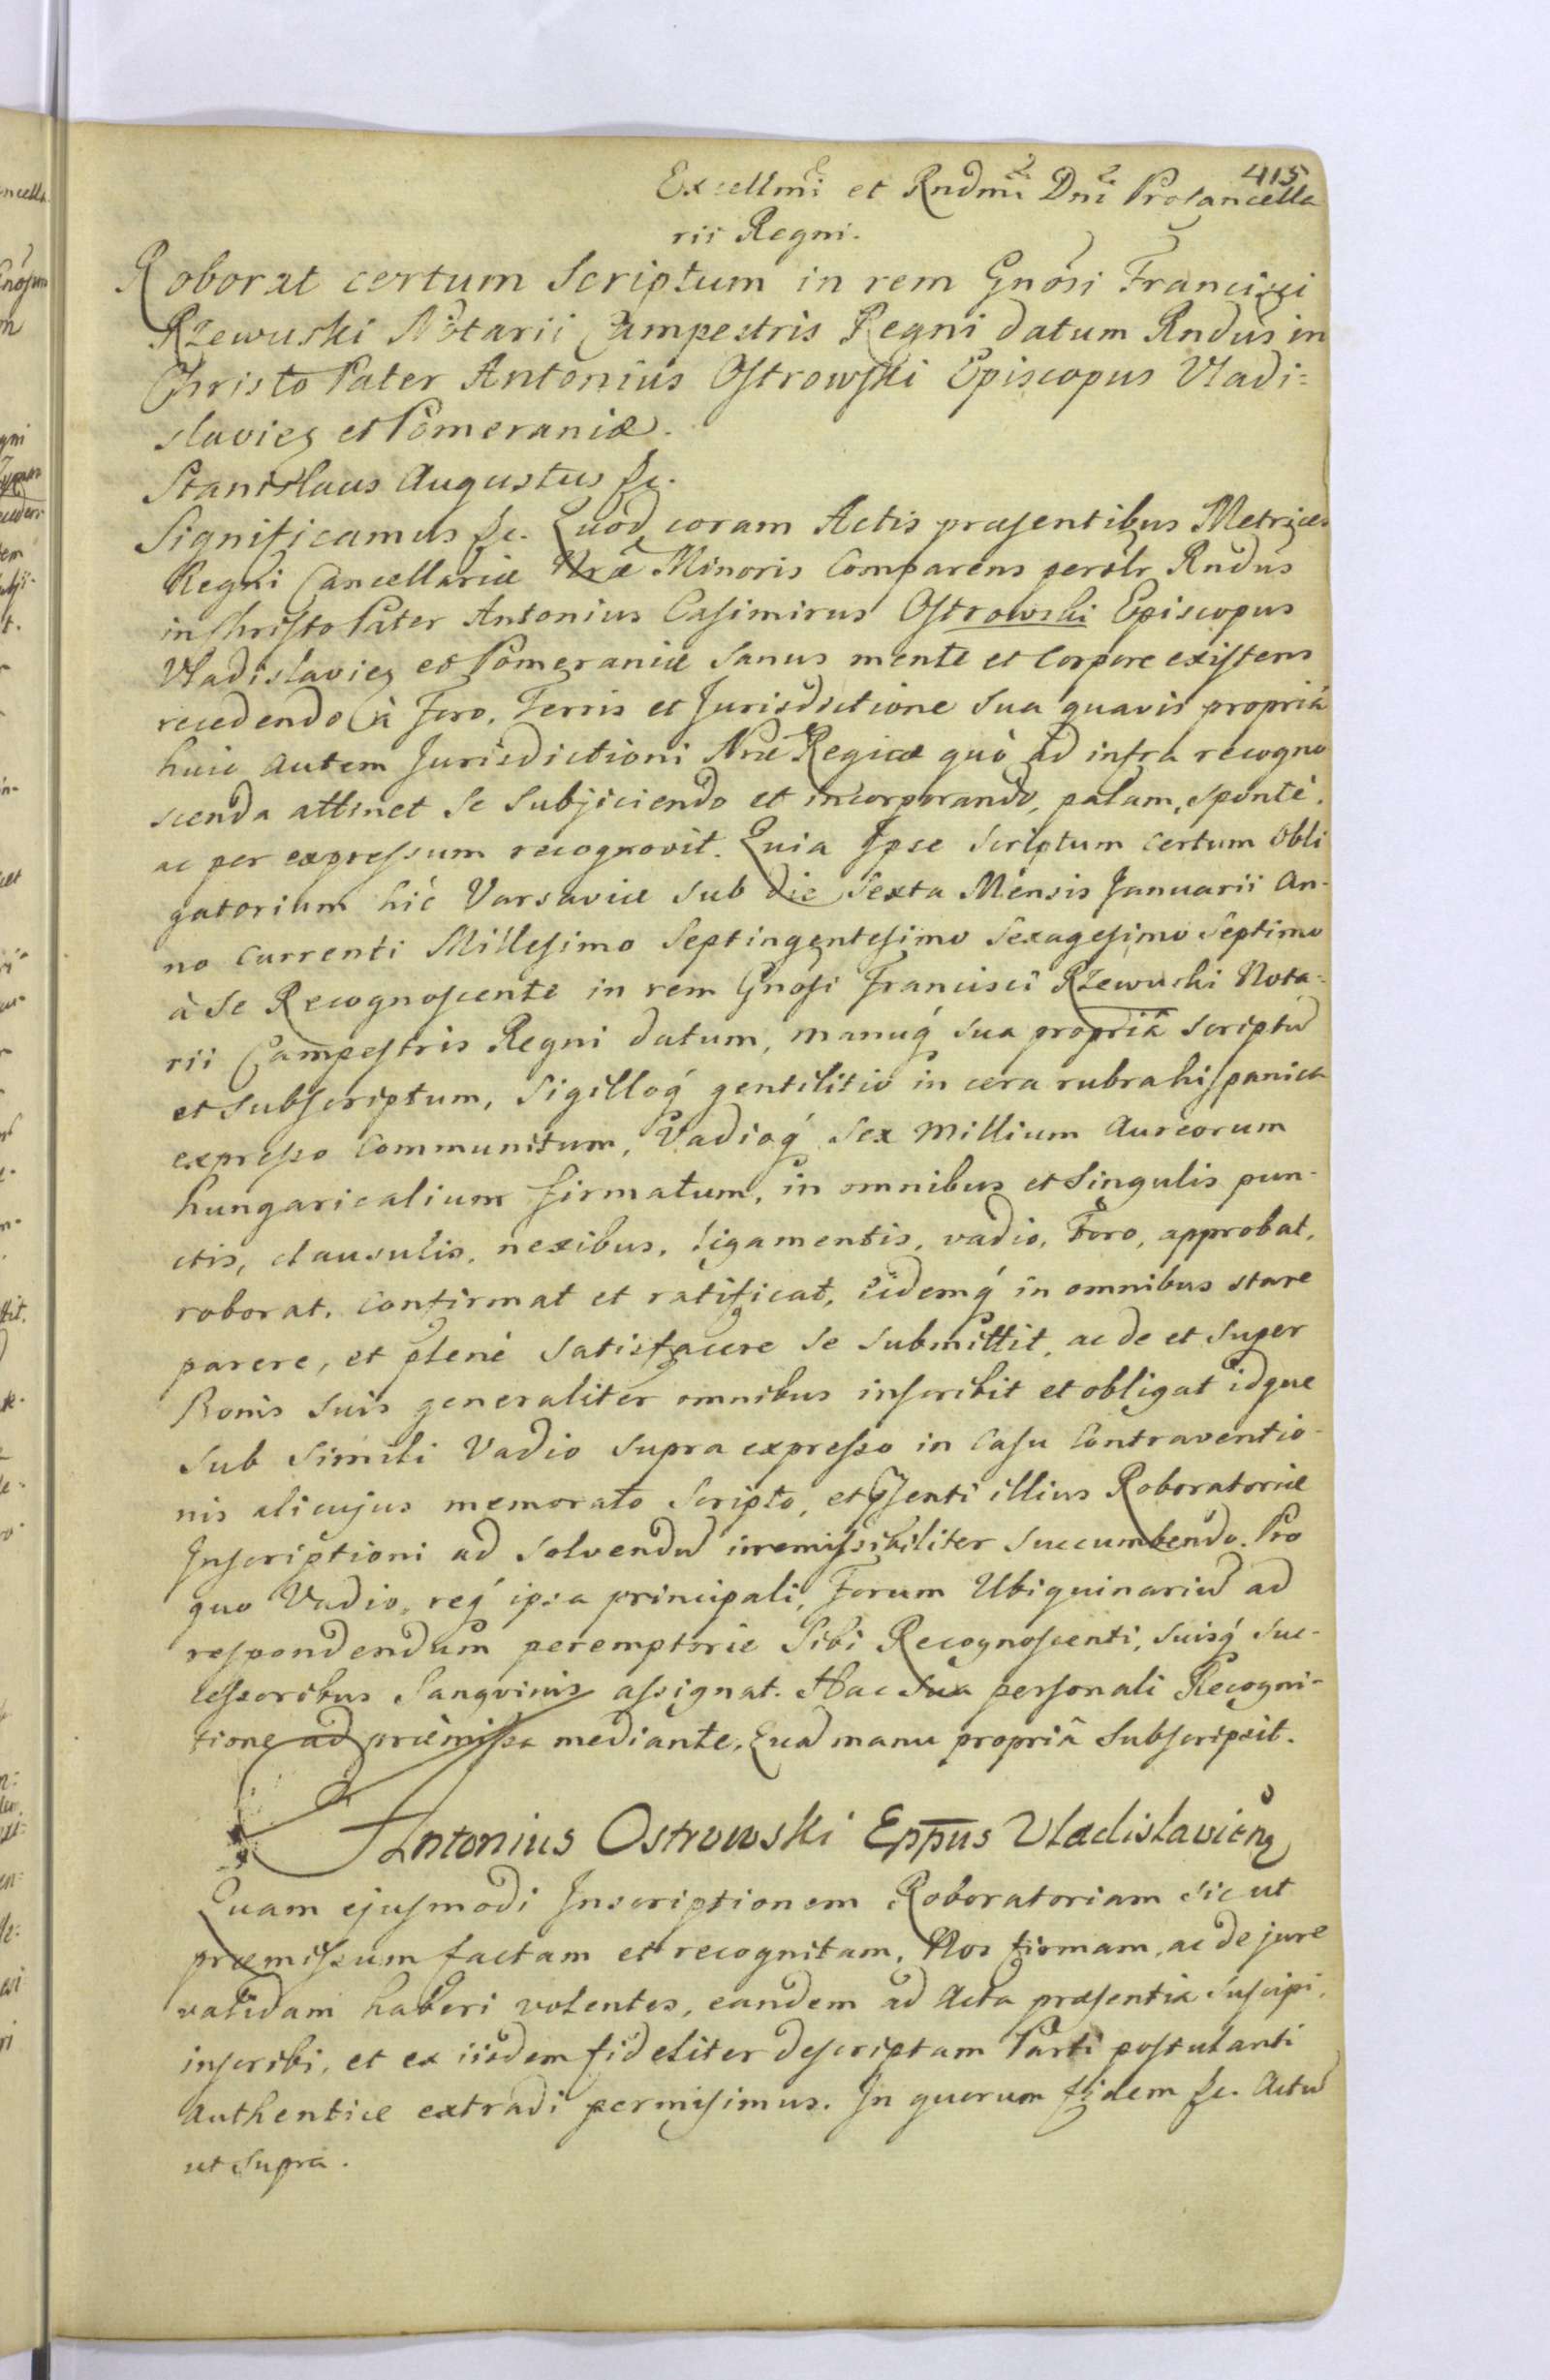 415
Excellmi et Rndmi Dni Procancella
rii Regni.
Roborat certum Scriptum in rem Gnosi Francisci
Rzewuski Notarii Campestris Regni datum Rndus in
Christo Pater Antonius Ostrowski Episcopus Vladi=
slavien et Pomeraniæ.
Stanislaus Augustus &c.
Significamus &c. Quod coram Actis præsentibus Metrices
Regni Cancellariæ Nræ Minoris Comparens persolr Rndus
in Christo Pater Antonius Casimirus Ostrowski Episcopus
Vladislavien et Pomeraniæ Sanus mente et Corpore existens
recedendo à Foro, Terris et Jurisdictione Sua quavis propriâ
huic autem Jurisdictioni Nræ Regiæ quò ad infra recogno
scenda attinet Se Subjiciendo et incorporando, palam, spontè,
ac per expressum recognovit. Quia Ipse Scriptum certum obli
gatorium hic Varsaviæ sub die Sexta Mensis Januarii An-
no Currenti Millesimo Septingentesimo Sexagesimo Septimo
à Se Recognoscente in rem Gnosi Francisci Rzewuski Nota-
rii Campestris Regni datum, manuq́ sua propriâ scriptũ
et subscriptum, Sigilloq́ gentilitio in cera rubra hispanica
expresso Communitum, Vadioq́ Sex Millium Aureorum
hungaricalium firmatum, in omnibus et Singulis pun-
ctis, clausulis, nexibus, ligamentis, vadio, Foro, approbat,
roborat, confirmat et ratificat, iidemq́ in omnibus stare
parere, et plenè satisfacere se submittit, ac de et super
Bonis suis generaliter omnibus inscribit et obligat idque
sub simili Vadio supra expresso in Casu Contraventio-
nis alicujus memorato Scripto, et pnsenti illius Roboratoriæ
Inscriptioni ad solvendũ irremissibiliter succumbendo. Pro
quo Vadio, req́ ipsa principali, Forum Ubiquinariũ ad
respondendum peremptorie Sibi Recognoscenti, Suisq́ Suc-
cessoribus Sangvinis assignat. Hac Sua personali Recogni-
tione ad præmissa mediante. Quã manu propriâ subscripsit.
Antonius Ostrowski Eppus Vladislavien
Quam ejusmodi Inscriptionem Roboratoriam sic ut
præmissum factam et recognitam, Nos firmam, ac de jure
validam haberi volentes, eandem ad Acta præsentia suscipi,
inscribi, et ex iisdem fideliter descriptam Parti postulanti
Authentice extradi permisimus. In quorum fidem &c. Actũ
ut supra.